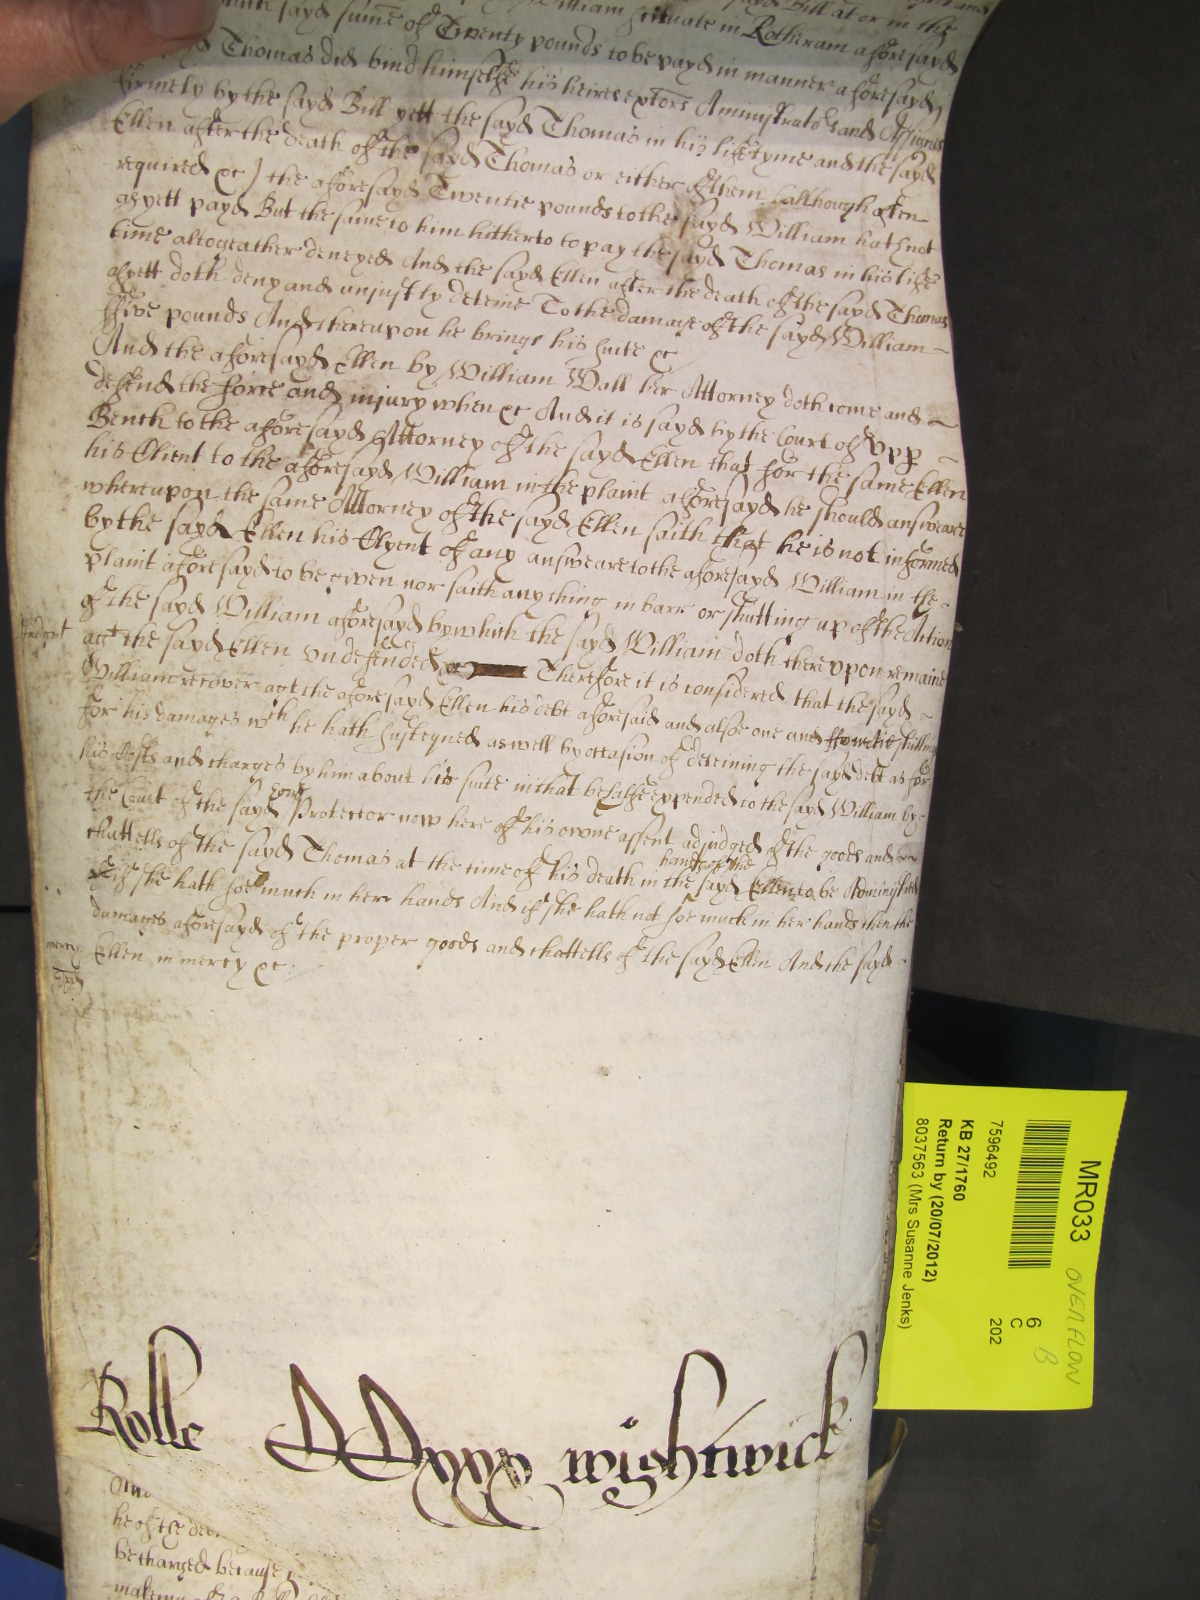 sayd Bill at or in the
William scituate in Rotheram aforesayd
which sayd sume of Twenty pounds to be payd in manner aforesayd
Thomas did bind himselfe his heires extors Aministrators and Assignes
firmely by the sayd Bill yett the sayd Thomas in his life tyme and the sayd
Ellen after the death of the sayd Thomas or either of them (allthough often
required &c) the aforesayd Twentie pounds to the sayd William hath not
as yett payd But the same to him hitherto to pay the sayd Thomas in his life
time altogeather denyed And the sayd Ellen after the death of the sayd Thomas
as yett doth deny and unjustly deteine To the damage of the sayd William
ffive pounds And thereupon he brings his suite &c
And the aforesayd Ellen by William Wall her Attorney doth come and
defend the force and injury when &c And it is sayd by the Court of Upp
Bench to the aforesayd Attorney of the sayd Ellen that for the same Ellen
his Client to the aforesayd William in the plaint aforesayd he should answeare
whereupon the same Attorney of the sayd Ellen saith that he is not informed
by the sayd Ellen his Clyent of any answeare to the aforesayd William in the
plaint aforesayd to be given nor saith any thing in barr or shutting up of the Action
of the sayd William aforesayd by which the sayd William doth thereupon remaine
agt the sayd Ellen undefended &c Therefore it is considered that the sayd
William recover agt the aforesayd Ellen his debt aforesaid and alsoe one and
for his damages wch he hath susteyned as well by occasion of deteining the sayd debt as for
his Costs and charges by him about his suite in that behalfe expended to the sayd William by
the Court of the sayd Lord Protector now here of his owne assent adjudged of the goods and
chattells of the sayd Thomas at the time of his death in the hands of the sayd Ellen to be Administred
if she hath soe much in her hands And if she hath not soe much in her hands then the
damages aforesayd of the proper goods and chattells of the sayd Ellen And the sayd
mercy
Ellen in mercy &c
Rolle wightwick
he of the
be charged because
making of a
MR033
OVERFLOW
6
B
C
202
7596492
KB 27/1760
Return by (20/07/2012)
8037563 (Mrs Susanne Jenks)